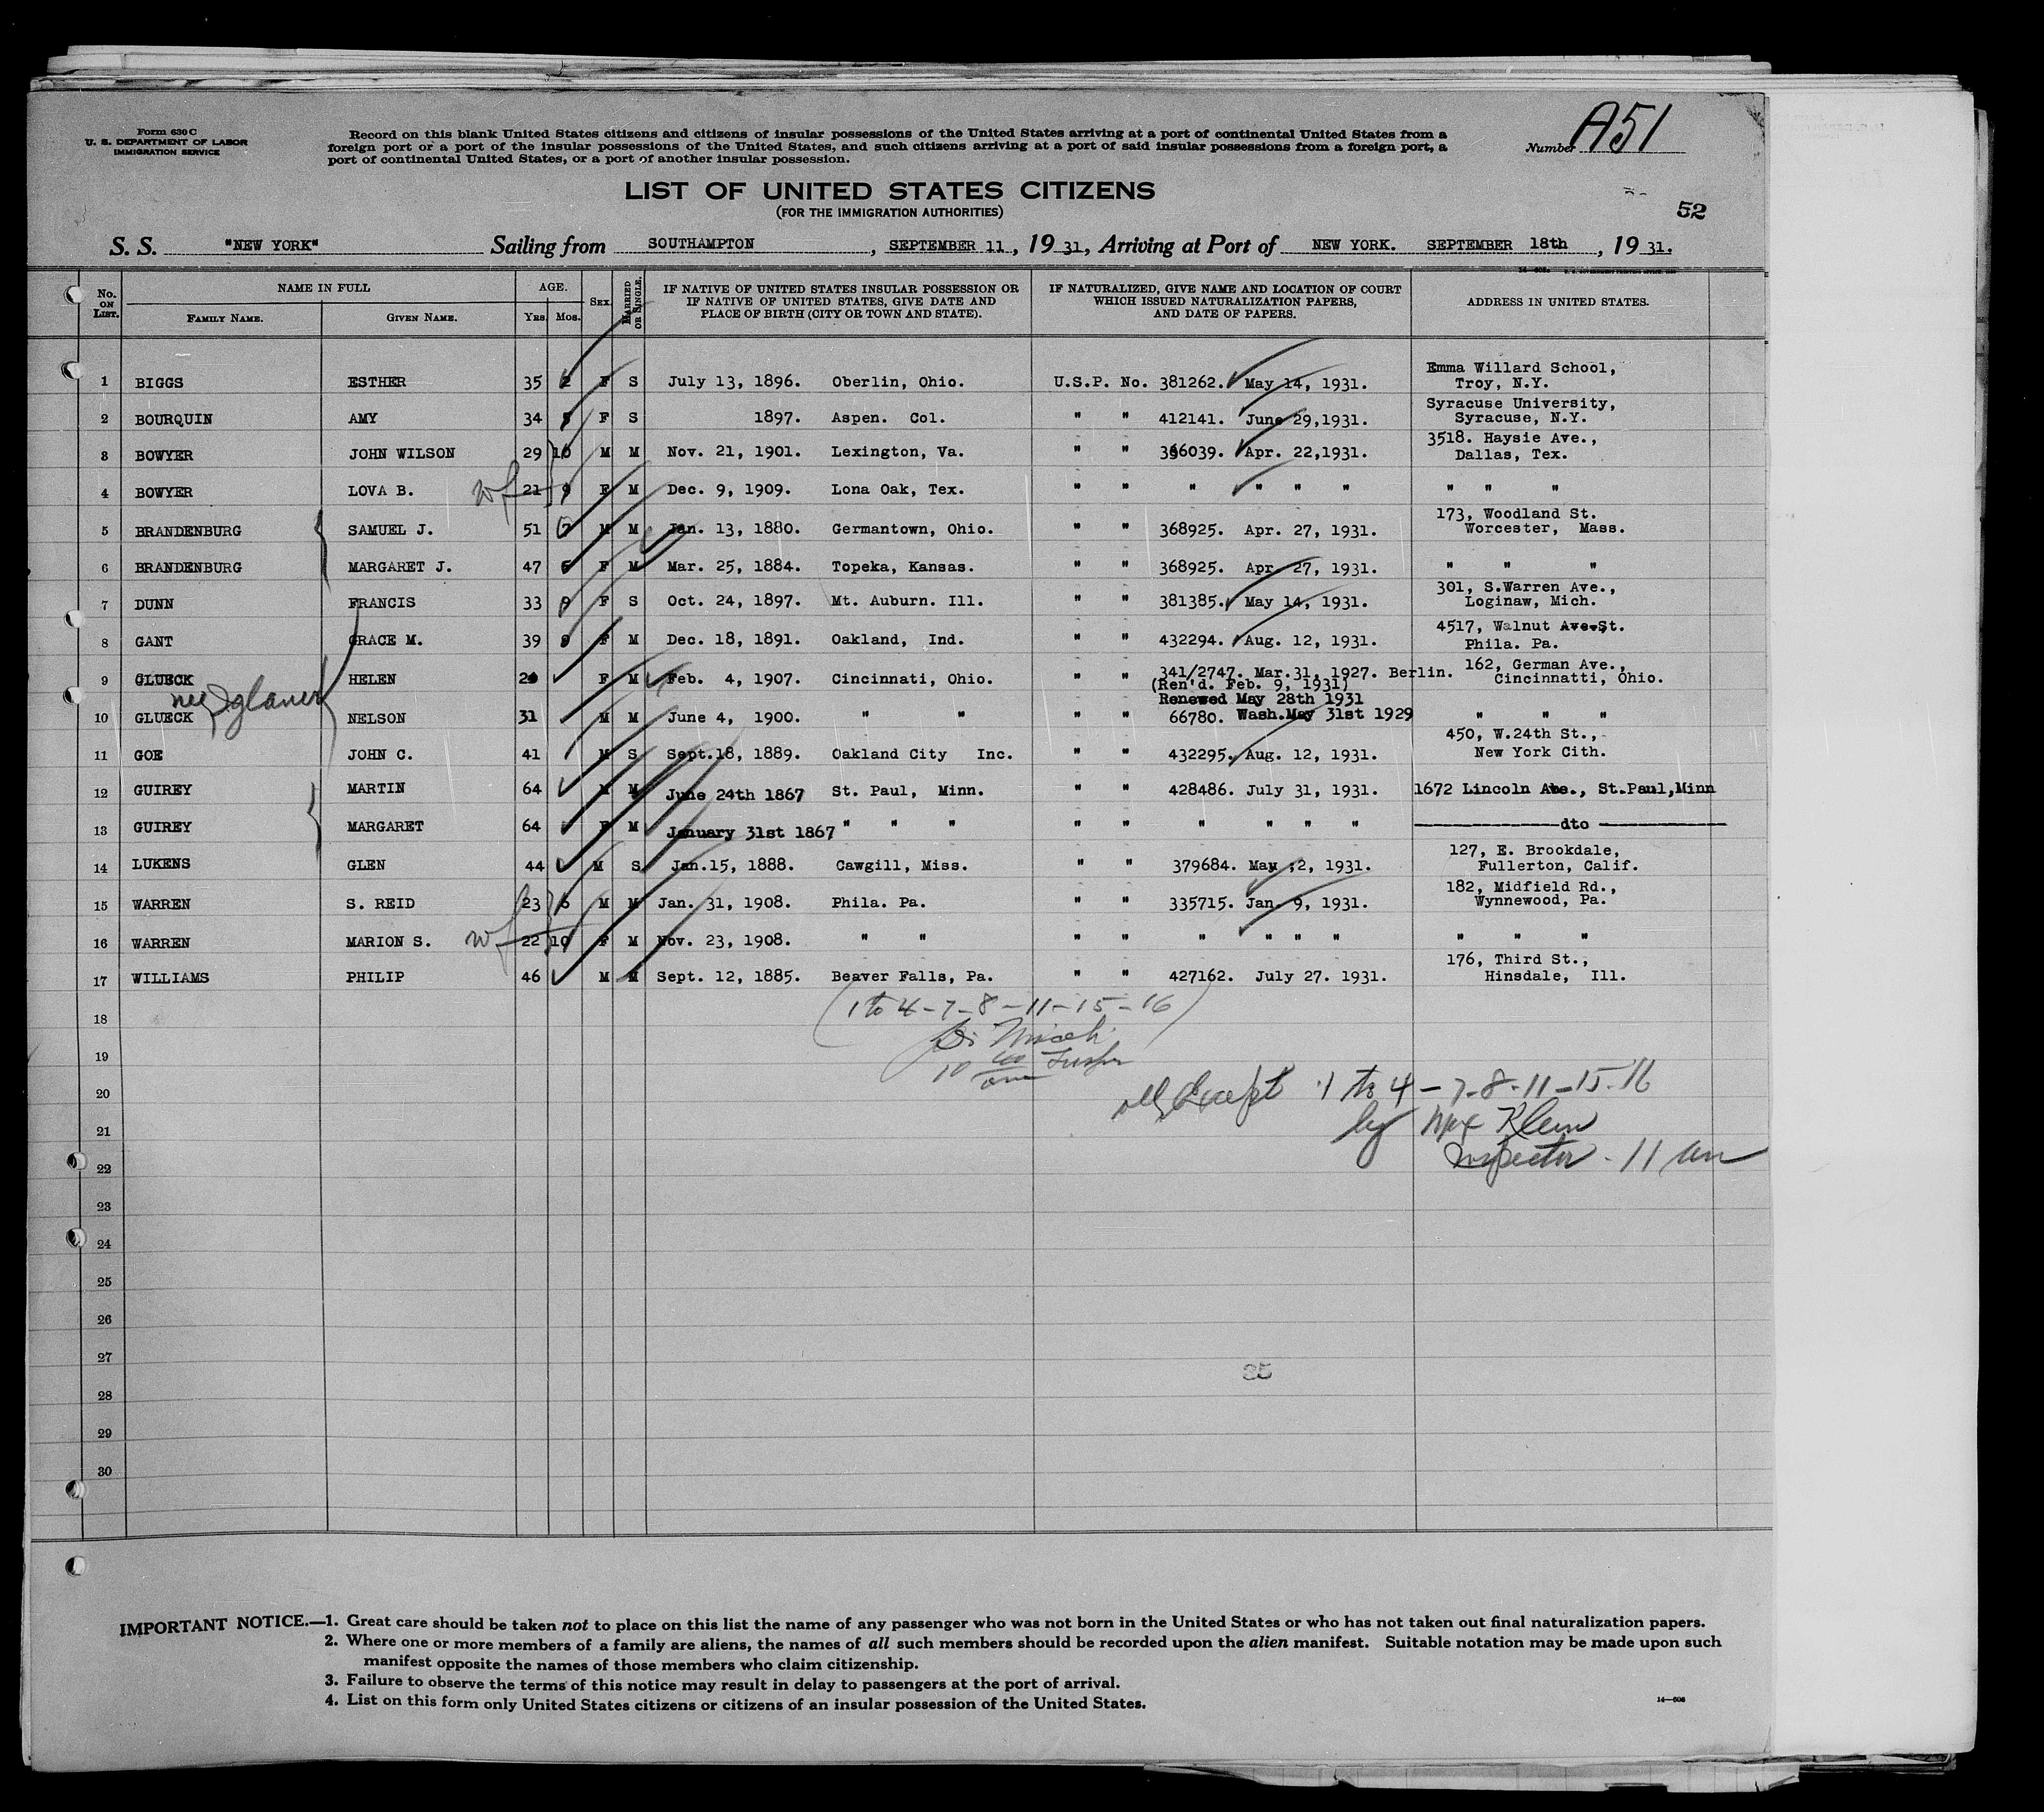 Form 630 C
U. S. DEPARTMENT OF LABOR
IMMIGRATION SERVICE
Record on this blank United States citizens and citizens of insular possessions of the United States arriving at a port of continental United States from a
foreign port or a port of the insular possessions of the United States, and such citizens arriving at a port of said insular possessions from a foreign port, a
port of continental United States, or a port of another insular possession.
Number A51
LIST OF UNITED STATES CITIZENS
(FOR THE IMMIGRATION AUTHORITIES)
52
S. S. "NEW YORK" Sailing from SOUTHAMPTON, SEPTEMBER 11, 19 31, Arriving at Port of NEW YORK. SEPTEMBER 18th, 19 31.
No. ON LIST. NAME IN FULL FAMILY NAME. GIVEN NAME. AGE. YRS. MOS. SEX. MARRIED OR SINGLE. IF NATIVE OF UNITED STATES INSULAR POSSESSION OR IF NATIVE OF UNITED STATES, GIVE DATE AND PLACE OF BIRTH (CITY OR TOWN AND STATE). IF NATURALIZED, GIVE NAME AND LOCATION OF COURT WHICH ISSUED NATURALIZATION PAPERS, AND DATE OF PAPERS. ADDRESS IN UNITED STATES.
1 BIGGS ESTHER 35 2 F S July 13, 1896. Oberlin, Ohio. U.S.P. No. 381262. May 14, 1931. Emma Willard School, Troy, N.Y.
2 BOURQUIN AMY 34 F S 1897. Aspen. Col. " " 412141. June 29,1931. Syracuse University, Syracuse, N.Y.
3 BOWYER JOHN WILSON 29 10 M M Nov. 21, 1901. Lexington, Va. " " Apr. 22,1931. 3518. Haysie Ave., Dallas, Tex.
4 BOWYER LOVA B. wf 21 9 F M Dec. 9, 1909. Lona Oak, Tex. " " " " " " " " "
5 BRANDENBURG SAMUEL J. 51 7 M M Jan. 13, 1880. Germantown, Ohio. " " 368925. Apr. 27, 1931. 173, Woodland St. Worcester, Mass.
6 BRANDENBURG MARGARET J. 47 F M Mar. 25, 1884. Topeka, Kansas. " " 368925. Apr. 27, 1931. " " "
7 DUNN FRANCIS 33 9 F S Oct. 24, 1897. Mt. Auburn. Ill. " " 381385. May 14, 1931. 301, S.Warren Ave., Loginaw, Mich.
8 GANT GRACE M. 39 F M Dec. 18, 1891. Oakland, Ind. " " 432294. Aug. 12, 1931. 4517, Walnut Ave.St. Phila. Pa.
9 GLUECK HELEN F M Feb. 4, 1907. Cincinnati, Ohio. " " 341/2747. Mar.31, 1927. Berlin. (Ren'd. Feb. 9, 1931) 162, German Ave., Cincinnatti, Ohio.
Renewed May 28th 1931
10 GLUECK NELSON 31 M M June 4, 1900. " " " " 66780. Wash.May 31st 1929 " " "
11 GOE JOHN C. 41 M S Sept.18, 1889. Oakland City Inc. " " 432295. Aug. 12, 1931. 450, W.24th St., New York Cith.
12 GUIREY MARTIN 64 M M June 24th 1867 St. Paul, Minn. " " 428486. July 31, 1931. 1672 Lincoln Ave., St.Paul,Minn
13 GUIREY MARGARET 64 F M January 31st 1867 " " " " " " " " " dto
14 LUKENS GLEN 44 M S Jan.15, 1888. Cawgill, Miss. " " 379684. May 12, 1931. 127, E. Brookdale, Fullerton, Calif.
15 WARREN S. REID 23 M M Jan. 31, 1908. Phila. Pa. " " 335715. Jan. 9, 1931. 182, Midfield Rd., Wynnewood, Pa.
16 WARREN MARION S. wf 22 10 F M Nov. 23, 1908. " " " " " " " " " " "
17 WILLIAMS PHILIP 46 M M Sept. 12, 1885. Beaver Falls, Pa. " " 427162. July 27. 1931. 176, Third St., Hinsdale, Ill.
18 (1 to 4 - 7 - 8 - 11 - 15 - 16)
19
20 all Except 1 to 4 - 7-8-11-15-16
21 by Max Klein
22 Inspector - 11 am
23
24
25
26
27
35
28
29
30
IMPORTANT NOTICE.—1. Great care should be taken not to place on this list the name of any passenger who was not born in the United States or who has not taken out final naturalization papers.
2. Where one or more members of a family are aliens, the names of all such members should be recorded upon the alien manifest. Suitable notation may be made upon such
manifest opposite the names of those members who claim citizenship.
3. Failure to observe the terms of this notice may result in delay to passengers at the port of arrival.
4. List on this form only United States citizens or citizens of an insular possession of the United States.
14—608